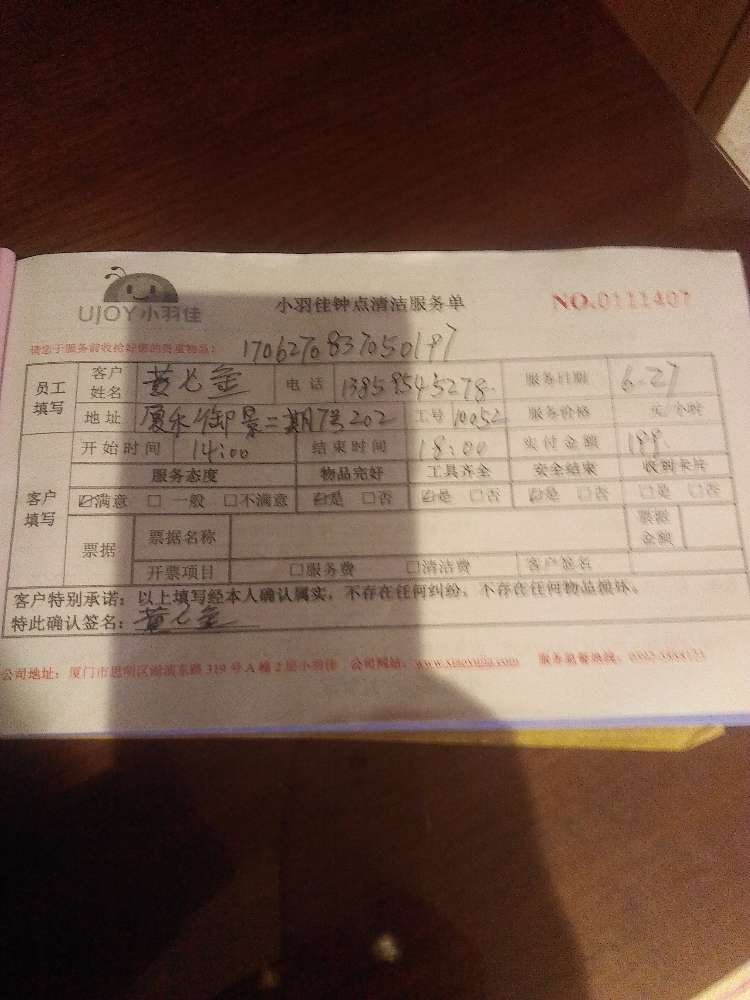 UJOY小羽佳 小羽佳钟点清洁服务单 NO.0111407
请您于服务前收拾好您的贵重物品: 1706270837050197
员工填写 客户姓名 黄 金 电话 13859545278 服务日期 6.27
地址 御景二期7号202 工号 10052 服务价格 元/小时
开始时间 14:00 结束时间 18:00 实付金额 188.
客户填写 服务态度 物品完好 工具齐全 安全结束 收到卡片
☑满意 □一般 □不满意 ☑是 □否 ☑是 □否 ☑是 □否 □是 □否
票据 票据名称 票据金额
开票项目 □服务费 □清洁费 客户签名
客户特别承诺:以上填写经本人确认属实,不存在任何纠纷,不存在任何物品损坏。
特此确认签名: 黄 金
公司地址:厦门市思明区湖滨东路319号A幢2层小羽佳 公司网站:www.xiaoyujia.com 服务监督热线: